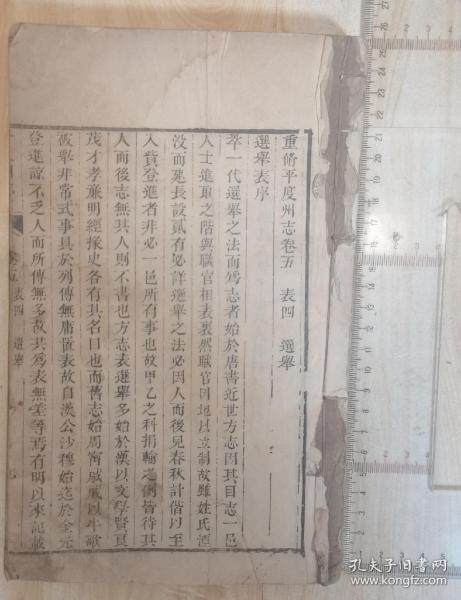 重脩平度州志卷五 表四 選舉
選舉表序
萃一代選舉之法而爲志者始於唐書近世方志因其目志一邑
人士進取之階與職官相表裏然職官因地以立制故雖姓氏湮
沒而建長設貳有必詳選舉之法必因人而後見春秋計偕以至
入貲登進者非必一邑所有事也故甲乙之科捐輸之例皆待其
人而後志無其人則不書也方志表選舉多始於漢以文學賢良
茂才孝廉明經掾史各有其名目也而舊志始周甯戚戚以牛歌
被舉非常式事具於列傳無庸置表故自漢公沙穆始迄於金元
登進諒不乏人而所傳無多故共爲表無差等焉有明以來記載
卷五 表四 選舉
孔夫子旧书网
book.kongfz.com